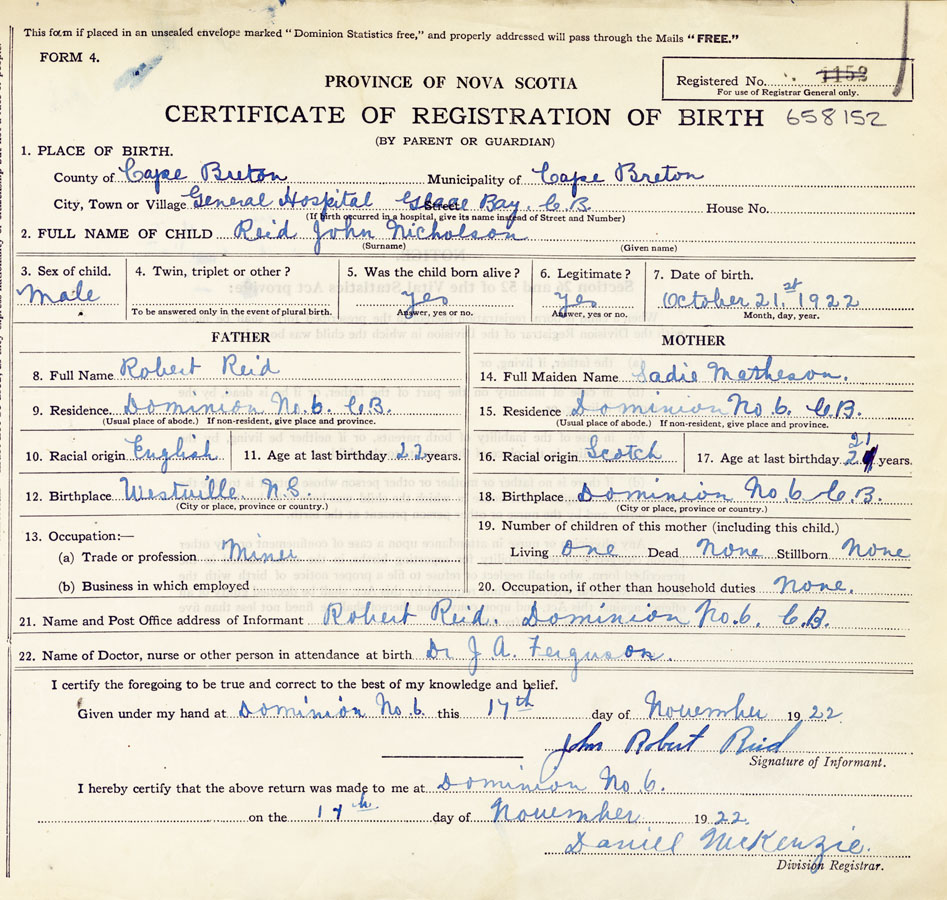 This form if placed in an unsealed envelope marked "Dominion Statistics free," and properly addressed will pass through the Mails "FREE."
FORM 4.
PROVINCE OF NOVA SCOTIA
Registered No. 1152
For use of Registrar General only.
CERTIFICATE OF REGISTRATION OF BIRTH 658152
(BY PARENT OR GUARDIAN)
1. PLACE OF BIRTH.
County of Cape Breton Municipality of Cape Breton
City, Town or Village General Hospital Glace Bay. C.B. Street House No.
(If birth occurred in a hospital, give its name instead of Street and Number)
2. FULL NAME OF CHILD Reid John Nicholson
(Surname) (Given name)
3. Sex of child. 4. Twin, triplet or other? 5. Was the child born alive? 6. Legitimate? 7. Date of birth.
Male yes yes October 21.st 1922
To be answered only in the event of plural birth. Answer, yes or no. Answer, yes or no. Month, day, year.
FATHER MOTHER
8. Full Name Robert Reid 14. Full Maiden Name Sadie Matheson.
9. Residence. Dominion No. 6. C.B. 15. Residence Dominion No 6. C.B.
(Usual place of abode.) If non-resident, give place and province. (Usual place of abode.) If non-resident, give place and province.
10. Racial origin English 11. Age at last birthday 22 years. 16. Racial origin Scotch 17. Age at last birthday 21 years.
12. Birthplace Westville. N.S. 18. Birthplace Dominion No 6 C.B.
(City or place, province or country.) (City or place, province or country.)
13. Occupation:— 19. Number of children of this mother (including this child.)
(a) Trade or profession Miner Living One Dead None Stillborn None
(b) Business in which employed 20. Occupation, if other than household duties None.
21. Name and Post Office address of Informant Robert Reid. Dominion No. 6. C.B.
22. Name of Doctor, nurse or other person in attendance at birth Dr J. A. Ferguson.
I certify the foregoing to be true and correct to the best of my knowledge and belief.
Given under my hand at Dominion No. 6. this 17th day of November 1922.
John Robert Reid
Signature of Informant.
I hereby certify that the above return was made to me at Dominion No 6.
on the 17th day of November 1922.
Daniel McKenzie.
Division Registrar.